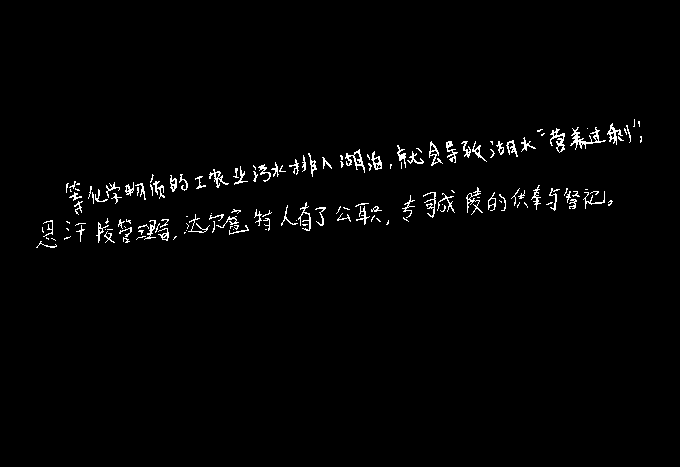 等化学物质的工农业污水排入湖泊,就会导致湖水“营养过剩”;
思汗陵管理局,达尔扈特人有了公职,专司成陵的供奉与祭祀。